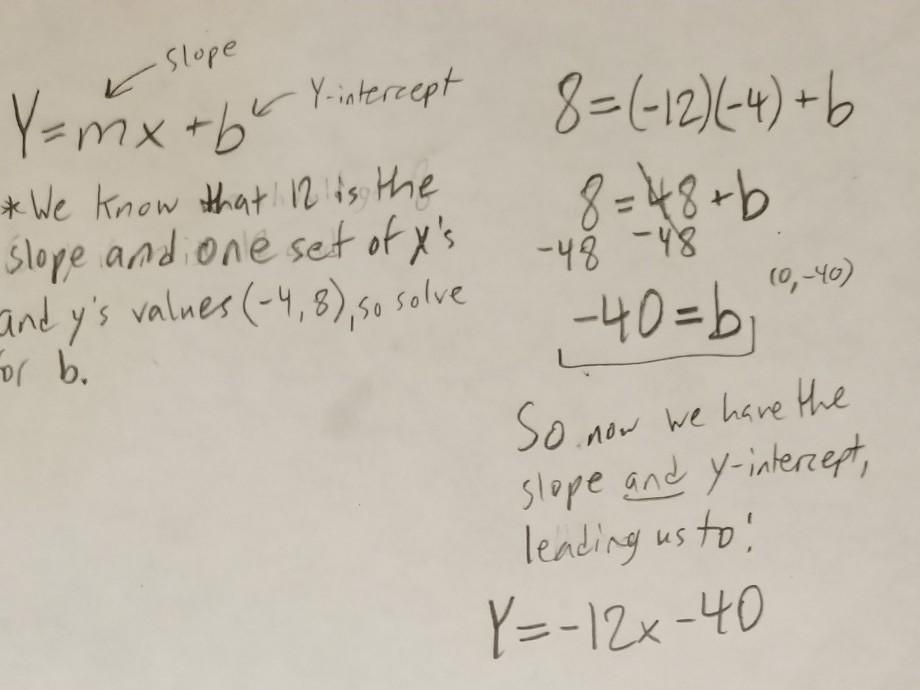 slope
Y=mx+b
Y-intercept
*We know that 12 is the
slope and one set of x's
and y's values (-4,8), so solve
or b.
8=(-12)(-4)+b
8=48+b
-48 -48
(0,-40)
-40=b
So now we have the
slope and y-intercept,
leading us to:
Y=-12x-40